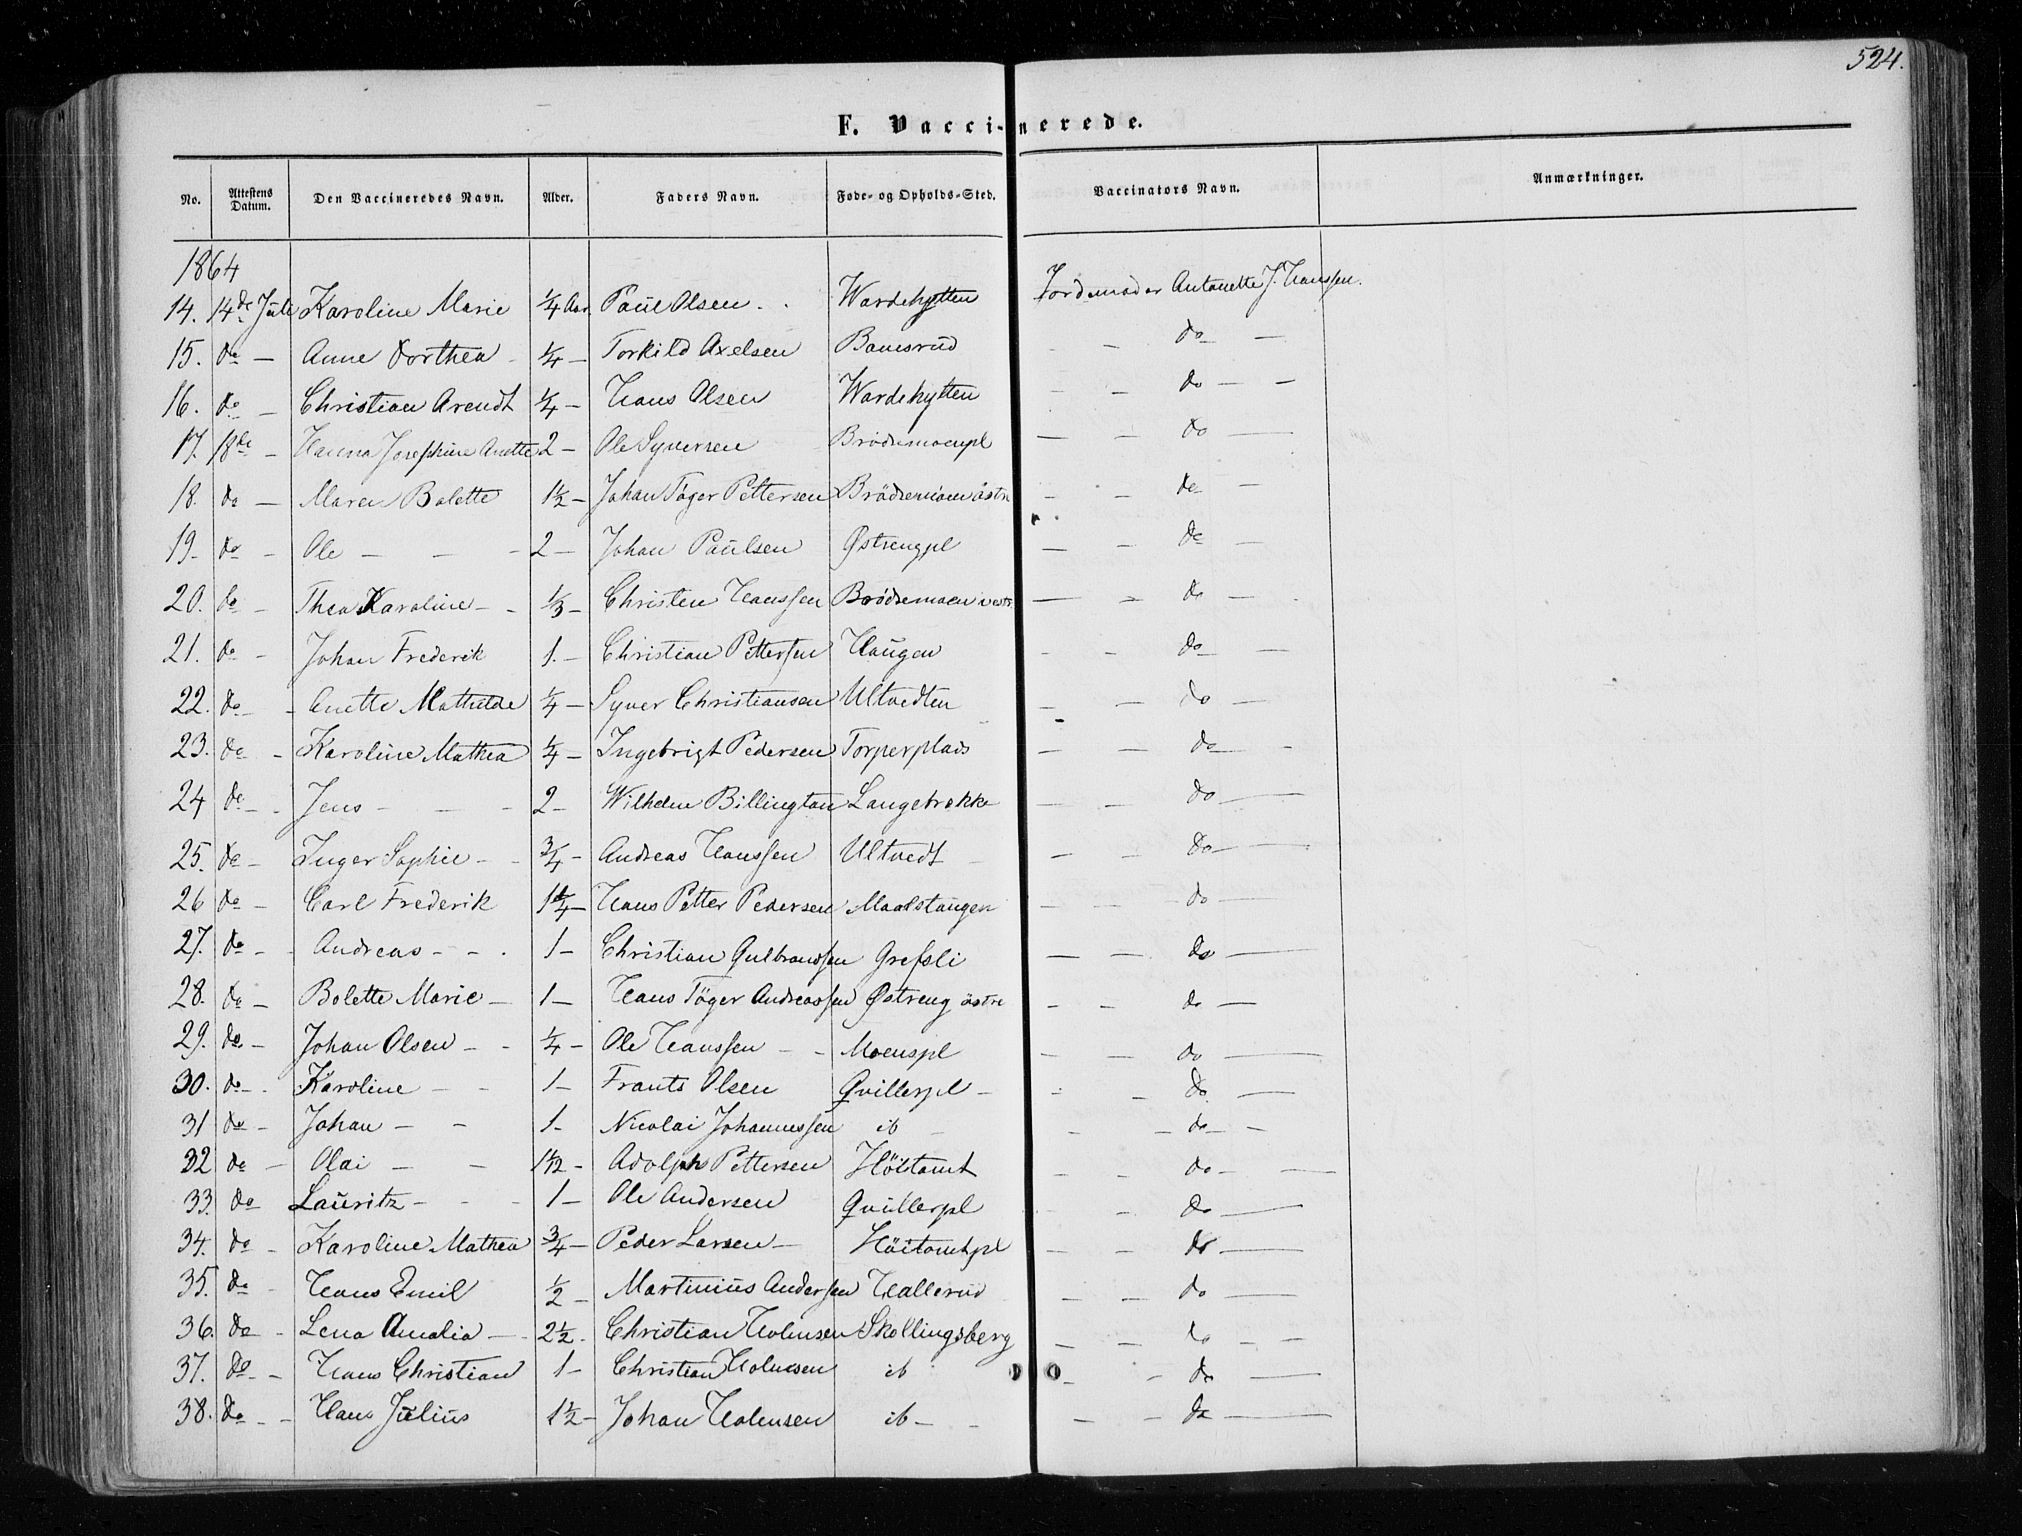 524.
F. Vaccinerede.
No. Attestens Datum. Den Vaccineredes Navn. Alder. Faders Navn. Føde- og Opholds-Sted. Vaccinators Navn. Anmærkninger.
1864
14. 14de Juli Karoline Marie 1/4 Aar Paul Olsen Wardehytten Jordemoder Antonette J. Hanssen.
15. do — Anne Dorthea 1/4 — Torkild Axelsen Banesrud — do —
16. do — Christian Arendt 1/4 — Hans Olsen Wardehytten — do — —
17. 18de — Hanna Josephine Anette 2 — Ole Syversen Brödsmoenpl — — do —
18. do — Maren Bolette 1 1/2 — Johan Töger Pettersen Brödsemoen östre — — do —
19. do — Ole — — — 2 — Johan Paulsen Østrengpl — — do —
20. do — Thea Karoline — — 1/3 — Christen Hanssen Brödsemoen vestr — — do —
21. do — Johan Frederik 1. — Christian Pettersen Haugen — — do —
22. do — Anette Mathilde 1/4 — Syver Christiansen Ultvedten — — do —
23. do — Karoline Mathea 1/4 — Ingebrigt Pedersen Torperplads — — do — —
24 do — Jens — — — 2 — Wilhelm Billington Langebrekke — — do —
25. do — Inger Sophie — — 3/4 — Andreas Hanssen Ultvedt — — — do —
26 do — Carl Frederik 1 1/4 — Hans Petter Pedersen Maalstangen — — do —
27. do — Andreas — — 1 — Christian Gulbrandsen Grefsli — — do —
28. do — Bolette Marie — 1 — Hans Töger Andreassen Østreng östre — — do —
29. do — Johan Olsen — — 1/4 — Ole Hanssen — — Moenspl — — do —
30. do — Karoline — — 1 — Frants Olsen Qvillerpl — — — do —
31 do — Johan — — 1 — Nicolai Johannessen ib — — — do —
32 do — Olai — — 1 1/2 — Adolph Pettersen Höitomt — — do —
33. do Lauritz — — — 1 — Ole Andersen Qvillerpl — — do —
34. do — Karoline Mathea 3/4 — Peder Larsen — Höitomtpl — — do —
35. do — Hans Emil 1/2 — Martinius Andersen Hallerud — — do —
36. do — Lena Amalia — 2 1/2. Christian Holmsen Skollingsberg — — do —
37. do — Hans Christian 1 — Christian Holmsen ib — — do —
38. do — — Hans Julius 1 1/2 — Johan Holmsen ib — — — — do —